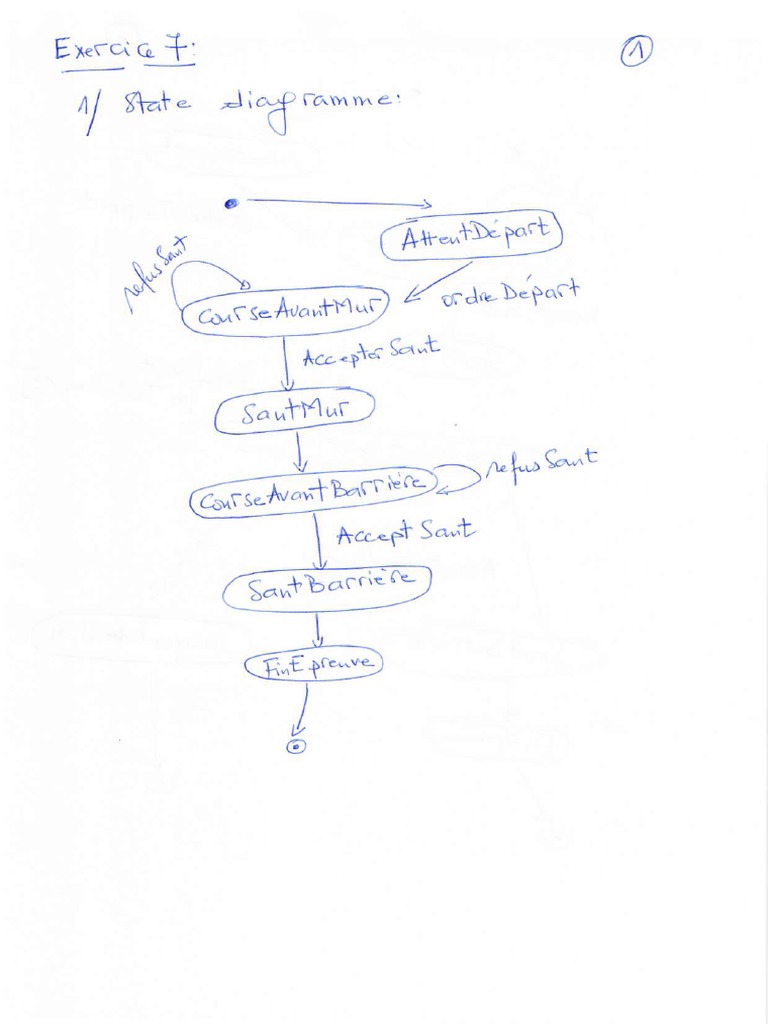 Exercice 7:
1
1/ State diagramme:
AttentDépart
refus Saut
CourseAvantMur
ordre Départ
Accepter Saut
SautMur
CourseAvantBarrière
refus Saut
Accept Saut
SautBarrière
FinEpreuve